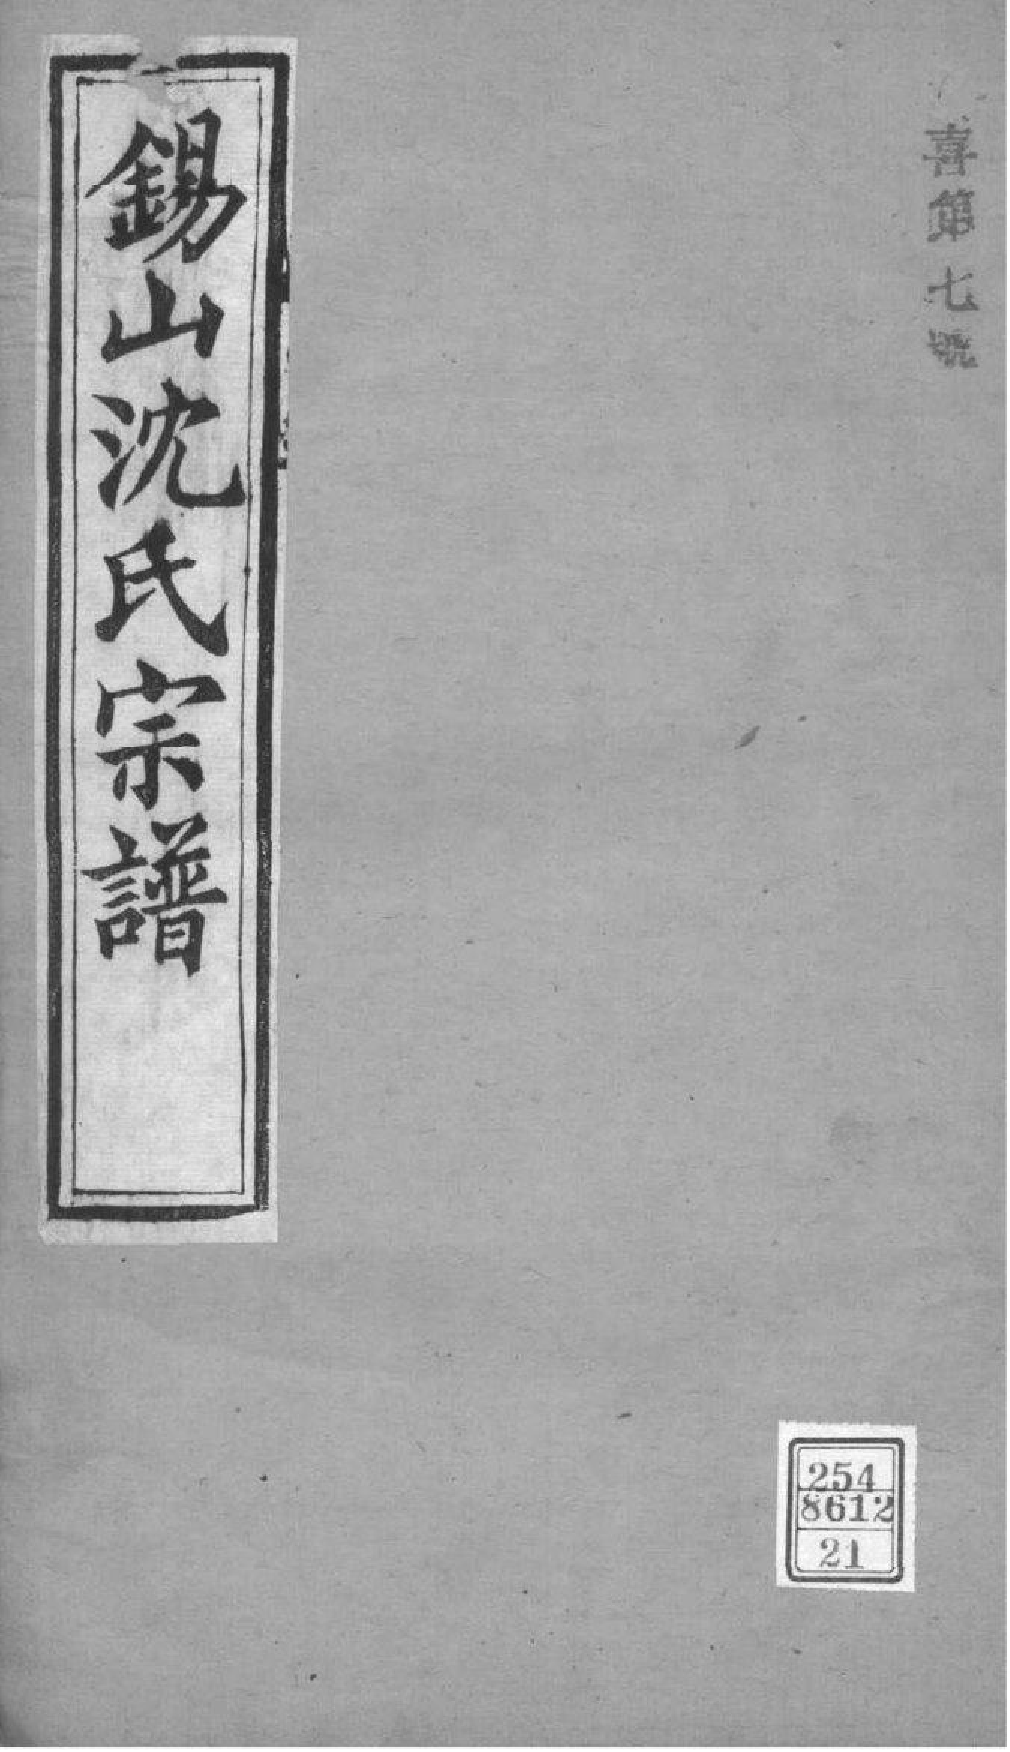 喜第七號
錫山沈氏宗譜
254
8612
21